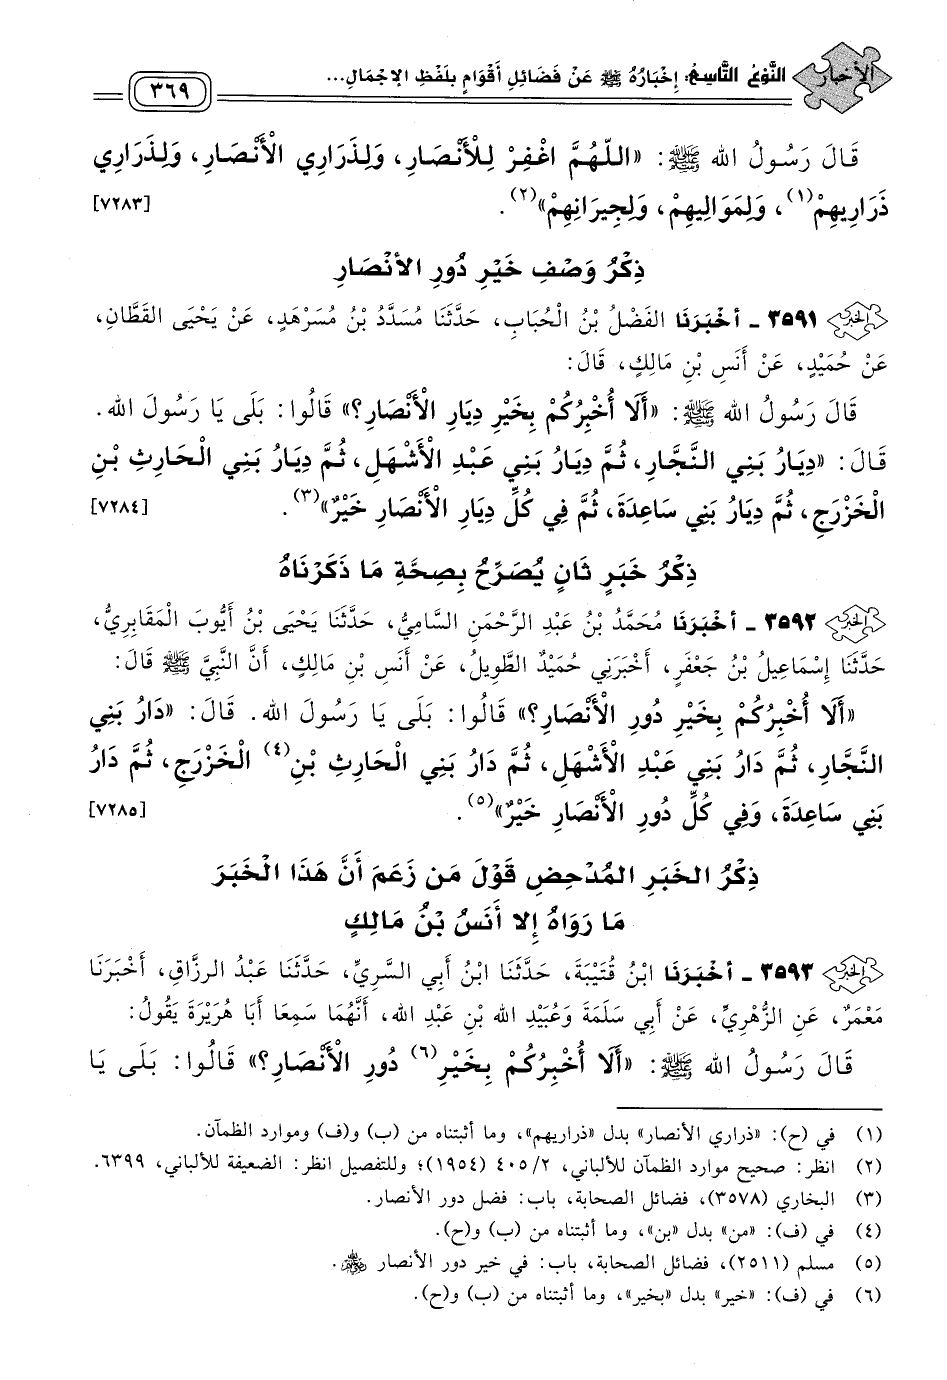 الأخبار
النَّوْعُ التَّاسِعُ: إِخْبَارُهُ ﷺ عَنْ فَضَائِلِ أَقْوَامٍ بِلَفْظِ الإِجْمَالِ...
٣٦٩
قَالَ رَسُولُ الله ﷺ: «اللَّهُمَّ اغْفِرْ لِلأَنْصَارِ، وَلِذَرَارِي الأَنْصَارِ، وَلِذَرَارِي
ذَرَارِيهِمْ(١)، وَلِمَوَالِيهِمْ، وَلِجِيرَانِهِمْ»(٢). [٧٢٨٣]
ذِكْرُ وَصْفِ خَيْرِ دُورِ الأَنْصَارِ
٣٥٩١ ـ أَخْبَرَنَا الفَضْلُ بْنُ الْحُبَابِ، حَدَّثَنَا مُسَدَّدُ بْنُ مُسَرْهَدٍ، عَنْ يَحْيَى القَطَّانِ،
عَنْ حُمَيْدٍ، عَنْ أَنَسِ بْنِ مَالِكٍ، قَالَ:
قَالَ رَسُولُ الله ﷺ: «أَلَا أُخْبِرُكُمْ بِخَيْرِ دِيَارِ الأَنْصَارِ؟» قَالُوا: بَلَى يَا رَسُولَ الله.
قَالَ: «دِيَارُ بَنِي النَّجَّارِ، ثُمَّ دِيَارُ بَنِي عَبْدِ الأَشْهَلِ، ثُمَّ دِيَارُ بَنِي الْحَارِثِ بْنِ
الْخَزْرَجِ، ثُمَّ دِيَارُ بَنِي سَاعِدَةَ، ثُمَّ فِي كُلِّ دِيَارِ الأَنْصَارِ خَيْرٌ»(٣). [٧٢٨٤]
ذِكْرُ خَبَرٍ ثَانٍ يُصَرِّحُ بِصِحَّةِ مَا ذَكَرْنَاهُ
٣٥٩٢ ـ أَخْبَرَنَا مُحَمَّدُ بْنُ عَبْدِ الرَّحْمَنِ السَّامِيُّ، حَدَّثَنَا يَحْيَى بْنُ أَيُّوبَ الْمَقَابِرِيُّ،
حَدَّثَنَا إِسْمَاعِيلُ بْنُ جَعْفَرٍ، أَخْبَرَنِي حُمَيْدٌ الطَّوِيلُ، عَنْ أَنَسِ بْنِ مَالِكٍ، أَنَّ النَّبِيَّ ﷺ قَالَ:
«أَلَا أُخْبِرُكُمْ بِخَيْرِ دُورِ الأَنْصَارِ؟» قَالُوا: بَلَى يَا رَسُولَ الله. قَالَ: «دَارُ بَنِي
النَّجَّارِ، ثُمَّ دَارُ بَنِي عَبْدِ الأَشْهَلِ، ثُمَّ دَارُ بَنِي الْحَارِثِ بْنِ(٤) الْخَزْرَجِ، ثُمَّ دَارُ
بَنِي سَاعِدَةَ، وَفِي كُلِّ دُورِ الأَنْصَارِ خَيْرٌ»(٥). [٧٢٨٥]
ذِكْرُ الخَبَرِ المُدْحِضِ قَوْلَ مَن زَعَمَ أَنَّ هَذَا الْخَبَرَ
مَا رَوَاهُ إِلا أَنَسُ بْنُ مَالِكٍ
٣٥٩٣ ـ أَخْبَرَنَا ابْنُ قُتَيْبَةَ، حَدَّثَنَا ابْنُ أَبِي السَّرِيِّ، حَدَّثَنَا عَبْدُ الرزَّاقِ، أَخْبَرَنَا
مَعْمَرٌ، عَنِ الزُّهْرِيِّ، عَنْ أَبِي سَلَمَةَ وَعُبَيْدِ الله بْنِ عَبْدِ الله، أَنَّهُمَا سَمِعَا أَبَا هُرَيْرَةَ يَقُولُ:
قَالَ رَسُولُ الله ﷺ: «أَلَا أُخْبِرُكُمْ بِخَيْرِ(٦) دُورِ الأَنْصَارِ؟» قَالُوا: بَلَى يَا
(١) في (ح): «ذراري الأنصار» بدل «ذراريهم»، وما أثبتناه من (ب) و(ف) وموارد الظمآن.
(٢) انظر: صحيح موارد الظمآن للألباني، ٤٠٥/٢ (١٩٥٤)؛ وللتفصيل انظر: الضعيفة للألباني، ٦٣٩٩.
(٣) البخاري (٣٥٧٨)، فضائل الصحابة، باب: فضل دور الأنصار.
(٤) في (ف): «من» بدل «بن»، وما أثبتناه من (ب) و(ح).
(٥) مسلم (٢٥١١)، فضائل الصحابة، باب: في خير دور الأنصار ﵃.
(٦) في (ف): «خير» بدل «بخير»، وما أثبتناه من (ب) و(ح).